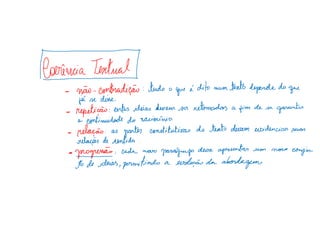 Coerência Textual
- não-contradição: tudo o que é dito num texto depende do que
já se disse
- repetição: certas ideias devem ser retomadas a fim de se garantir
a continuidade do raciocínio
- relação: as partes constitutivas do texto devem evidenciar suas
relações de sentido
- progressão: cada novo parágrafo deve apresentar um novo conjun
to de ideias, permitindo a evolução da abordagem